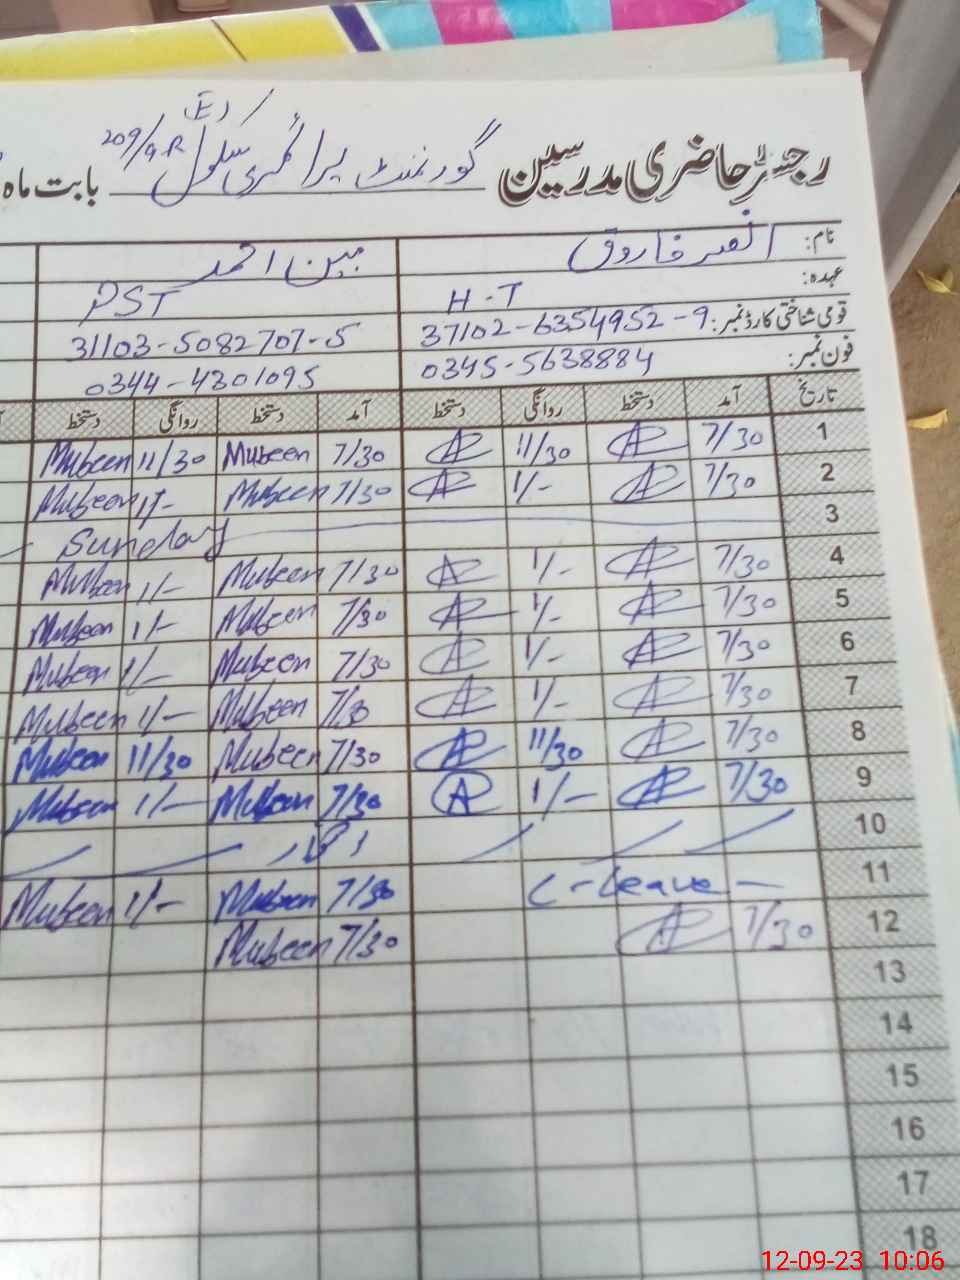 رجسٹر حاضری مدرسین گورنمنٹ پرائمری سکول 209/9R (E) بابت ماہ
نام: انصر فاروق مبین احمد
عہدہ: H-T PST
قومی شناختی کارڈ نمبر: 37102-6354952-9 31103-5082707-5
فون نمبر: 0345-5638884 0344-4301095
تاریخ آمد دستخط روانگی دستخط آمد دستخط روانگی دستخط
1 7/30 11/30 7/30 Mubeen 11/30 Mubeen
2 7/30 1/- 7/30 Mubeen 1/- Mubeen
3 Sunday
4 7/30 1/- 7/30 Mubeen 1/- Mubeen
5 7/30 1/- 7/30 Mubeen 1/- Mubeen
6 7/30 1/- 7/30 Mubeen 1/- Mubeen
7 7/30 1/- 7/30 Mubeen 1/- Mubeen
8 7/30 11/30 7/30 Mubeen 11/30 Mubeen
9 7/30 1/- A 7/30 Mubeen 1/- Mubeen
10
11 C-Leave - 7/30 Mubeen 1/- Mubeen
12 7/30 7/30 Mubeen
13
14
15
16
17
18
12-09-23 10:06